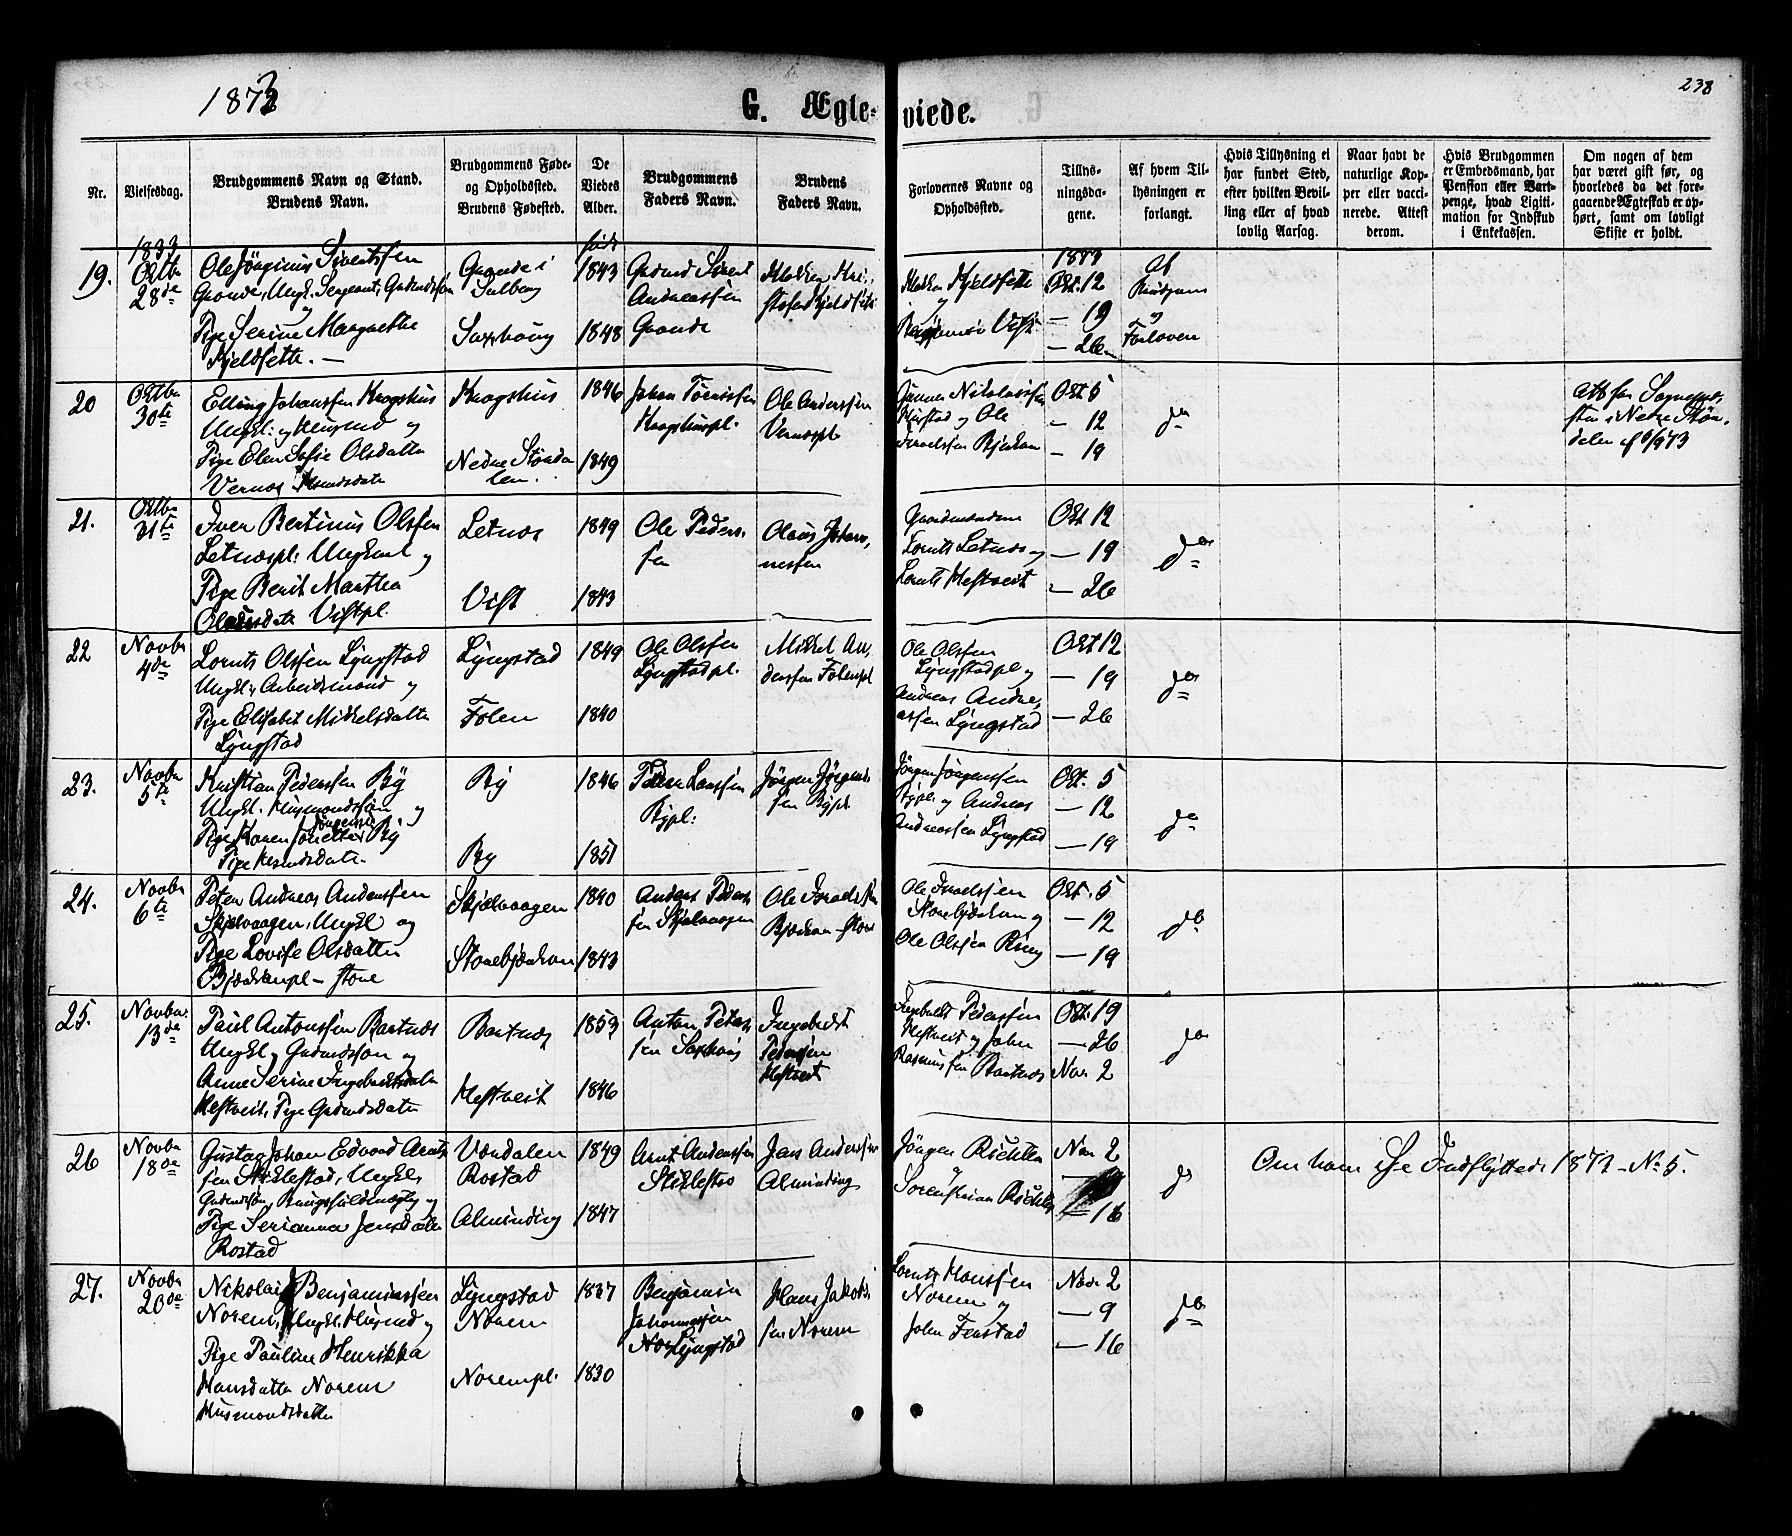 1873
238
G. Ægte-viede.
Nr.
Vielsesdag.
Brudgommens Navn og Stand.
Brudens Navn.
Brudgommens Føde-
og Opholdssted.
Brudens Fødested.
De
Viedes
Alder.
Brudgommens
Faders Navn.
Brudens
Faders Navn.
Forlovernes Navne og
Opholdssted.
Tillys-
ningsda-
gene.
Af hvem Til-
lysningen er
forlangt.
Hvis Tillysning ei
har fundet Sted,
efter hvilken Bevil-
ling eller af hvad
lovlig Aarsag.
Naar havt de
naturlige Kop-
per eller vacci-
nerede. Attest
derom.
Hvis Brudgommen
er Embedsmand, har
Pension eller Vart-
penge, hvad Ligiti-
mation for Indskud
i Enkekassen.
Om nogen af dem
har været gift før, og
hvorledes da det fore-
gaaende Ægteskab er op-
hørt, samt om lovligt
Skifte er holdt.
19.
Oktbr
28de
Ole Jørginus Sivertsen
Grande, Ungk. Sergeant, Gaardmdssøn
og
Pige Serine Margrethe
Kjeldsette. —
Grande i
Salberg
Saxhaug
født
1843
1848
Gadmd Sivert
Andreassen
Grande
Kjeldsette
og
Vist
Okt. 12
— 19
— 26
Af
Brudgom
og
Forlover
20
Oktbr
30te
Elling Johanssen Kragshus
Ungk. og Husmd og
Pige Elen Sofie Olsdatter
Vernes Husmdsdatr
Kragshus
Nedre Stjørda
len.
1846
1849
Johan Tørrissen
Kragshuspl.
Ole Anderssen
Vernespl
Gunner Nikolaissen
Hustad og Ole
Israelssen Bjerkan
Okt 5
— 12
— 19
do
Att fra Sognepræ
sten i Nedre Stjør
dalen
21.
Oktbr
31te
Iver Bertinus Olssen
Letnespl. Ungkarl og
Pige Berit Marthea
Olausdatr Vistpl.
Letnes
Vist
1849
1843
Ole Peders-
sen
Olaus Johan-
nessen
Gaardmændene
Lornts Letnes og
Lornts Hestveit
Okt 12
— 19
— 26
do
22
Novbr
4de
Lornts Olssen Lyngstad
Ungk. Arbeidsmand og
Pige Elisabet Mikkelsdatter
Lyngstad
Lyngstad
Folen
1849
1840
Ole Olssen
Lyngstadpl.
Mikkel An-
derssen Folenpl
Ole Olssen
Lyngstadpl og
Andreas Andre-
assen Lyngstad
Okt 12
— 19
— 26
do
23.
Novbr
5te
Kristian Pederssen By
Ungk. Husmandssøn og
Pige Karen Jørgensdtr By
Pige Husmdsdatr.
By
By
1846
1851
Peder Larssen
Bypl.
Jørgen Jørgens-
sen Bypl
Jørgen Jørgenssen
Bypl. og Andreas
Andreassen Lyngstad
Okt. 5
— 12
— 19
do
24.
Novbr
6te
Peter Andreas Anderssen
Skjelvaagen, Ungkl og
Pige Lovise Olsdatter
Bjerkanpl – store
Skjelvaagen
Storebjerkan
1840
1843
Anders Peders-
sen Skjelvaagen
Ole Israelssen
Bjerkan – store
Ole Israelssen
Storebjerkan og
Ole Olssen Ring
Okt. 5
— 12
— 19
do
25.
Novbr.
13de
Paul Antonssen Bartnes
Ungkl og Gadmdssøn og
Anne Serine Ingebretsdatr
Hestveit, Pige Gadmdsdatr
Bartnes
Hestveit
1853
1846
Anton Peters-
sen Saxhaug
Ingebret
Pederssen
Hestveit
Ingebret Pederssen
Hestveit og John
Rasmussen Bartnes
Okt. 19
— 26
Nov. 2
do
26
Novbr
18de
Gustav Johan Edvard Arnts-
sen Stiklestad, Ungkl.
Pige Serianna Jensdatter
Rostad
Værdalen
Rostad
Alminding
1849
1847
Arnt Anderssen
Stiklestad
Jens Anderssen
Alminding
Jørgen Richter
og
Søren Richter
Nov 2
— 16
do
Om ham se Indflyttede 1872 – No 5.
27.
Novbr
20de
Nikolai Benjaminssen
Norem, Ungkl. Husmd og
Pige Pauline Henrikka
Hansdatter Norem
Husmandsdatter
Lyngstad
Norem
Norempl.
1837
1830
Benjamin
Johannessen
Lyngstad
Hans Jakobs-
sen Norem
Lornts Hanssen
Norem og
John Fenstad
Nov. 2
— 9
— 16
do